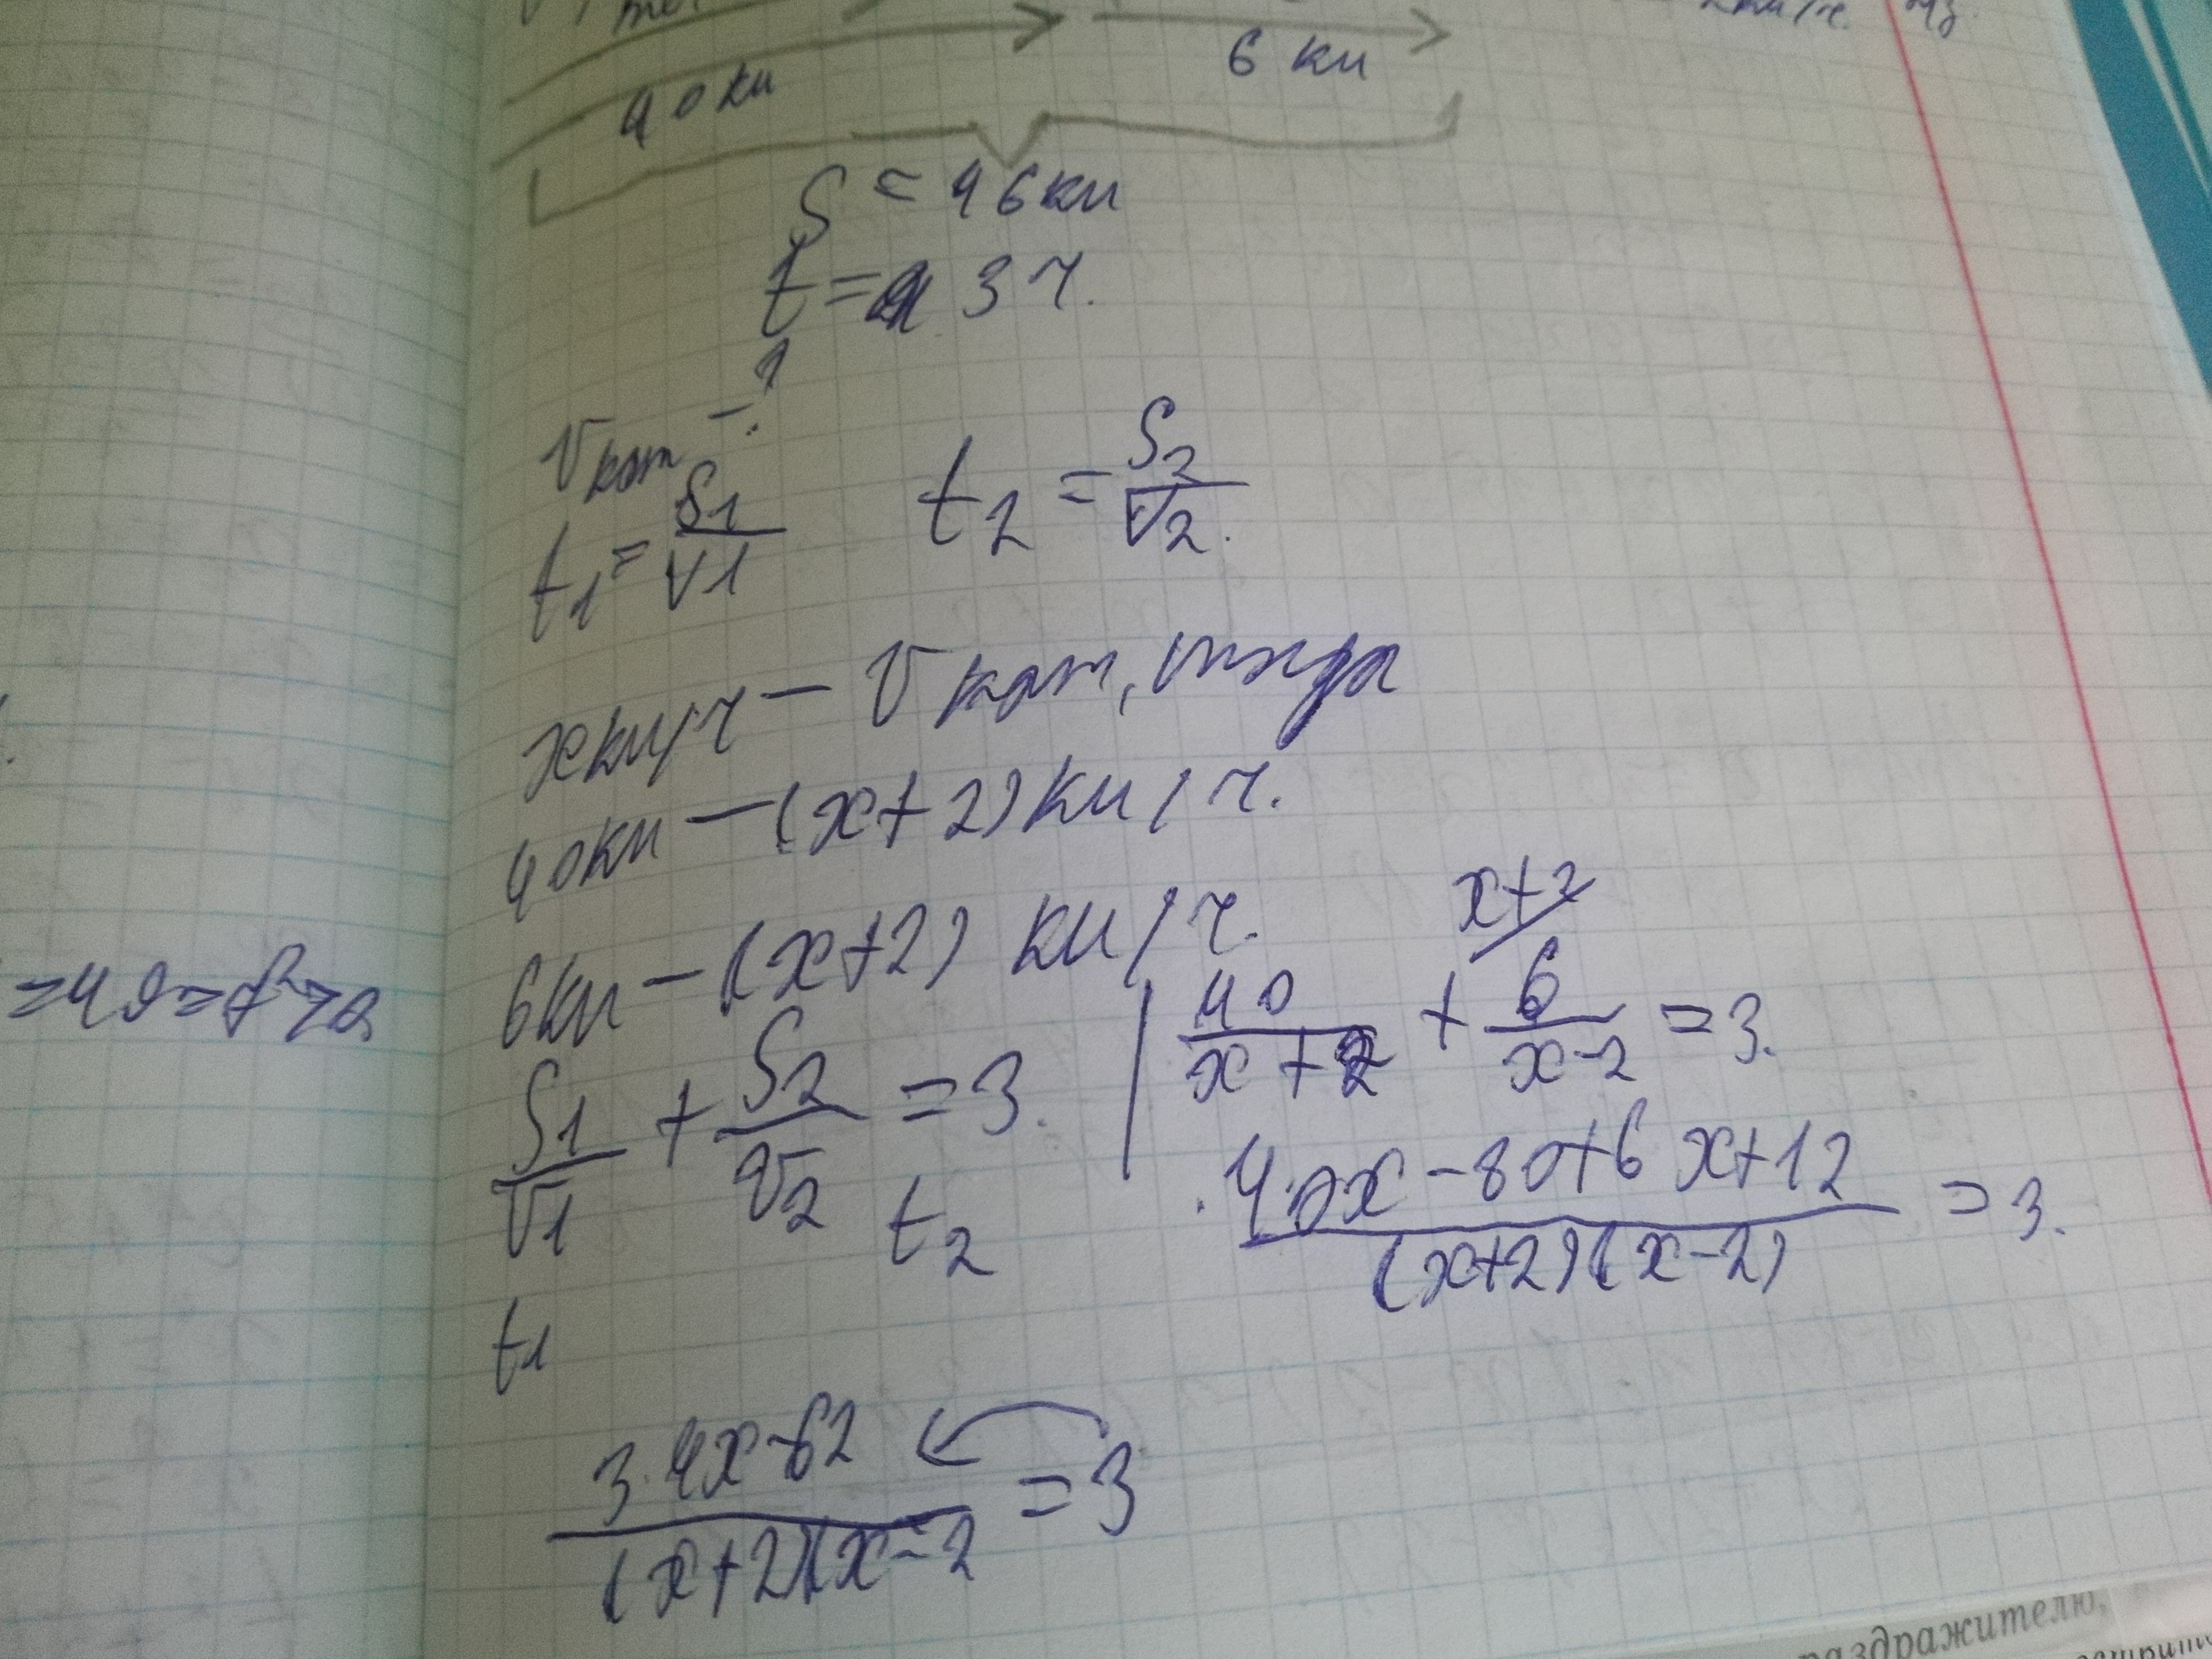 40 км
6 км
S = 46 км
t = 3 ч.
Vкат - ?
t1 = S1/V1 t2 = S2/V2.
x км/ч - V кат, тогда
40 км - (x+2) км/ч.
6 км - (x+2) км/ч.
x+2
S1/V1 + S2/V2 = 3. | 40/(x+2) + 6/(x-2) = 3.
t1 t2
40x - 80 + 6x + 12 / (x+2)(x-2) = 3.
3.4x - 62 / (x+2)(x-2 = 3
раздражителю,